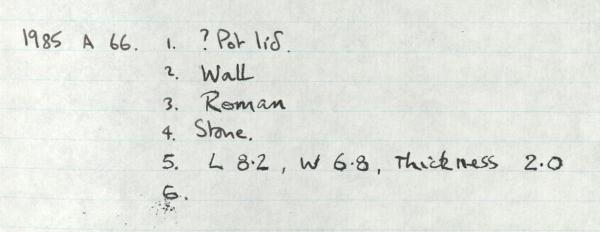 1985 A 66. 1. ? Pot lid.
2. Wall
3. Roman
4. Stone.
5. L 8.2, W 6.8, Thickness 2.0
6.